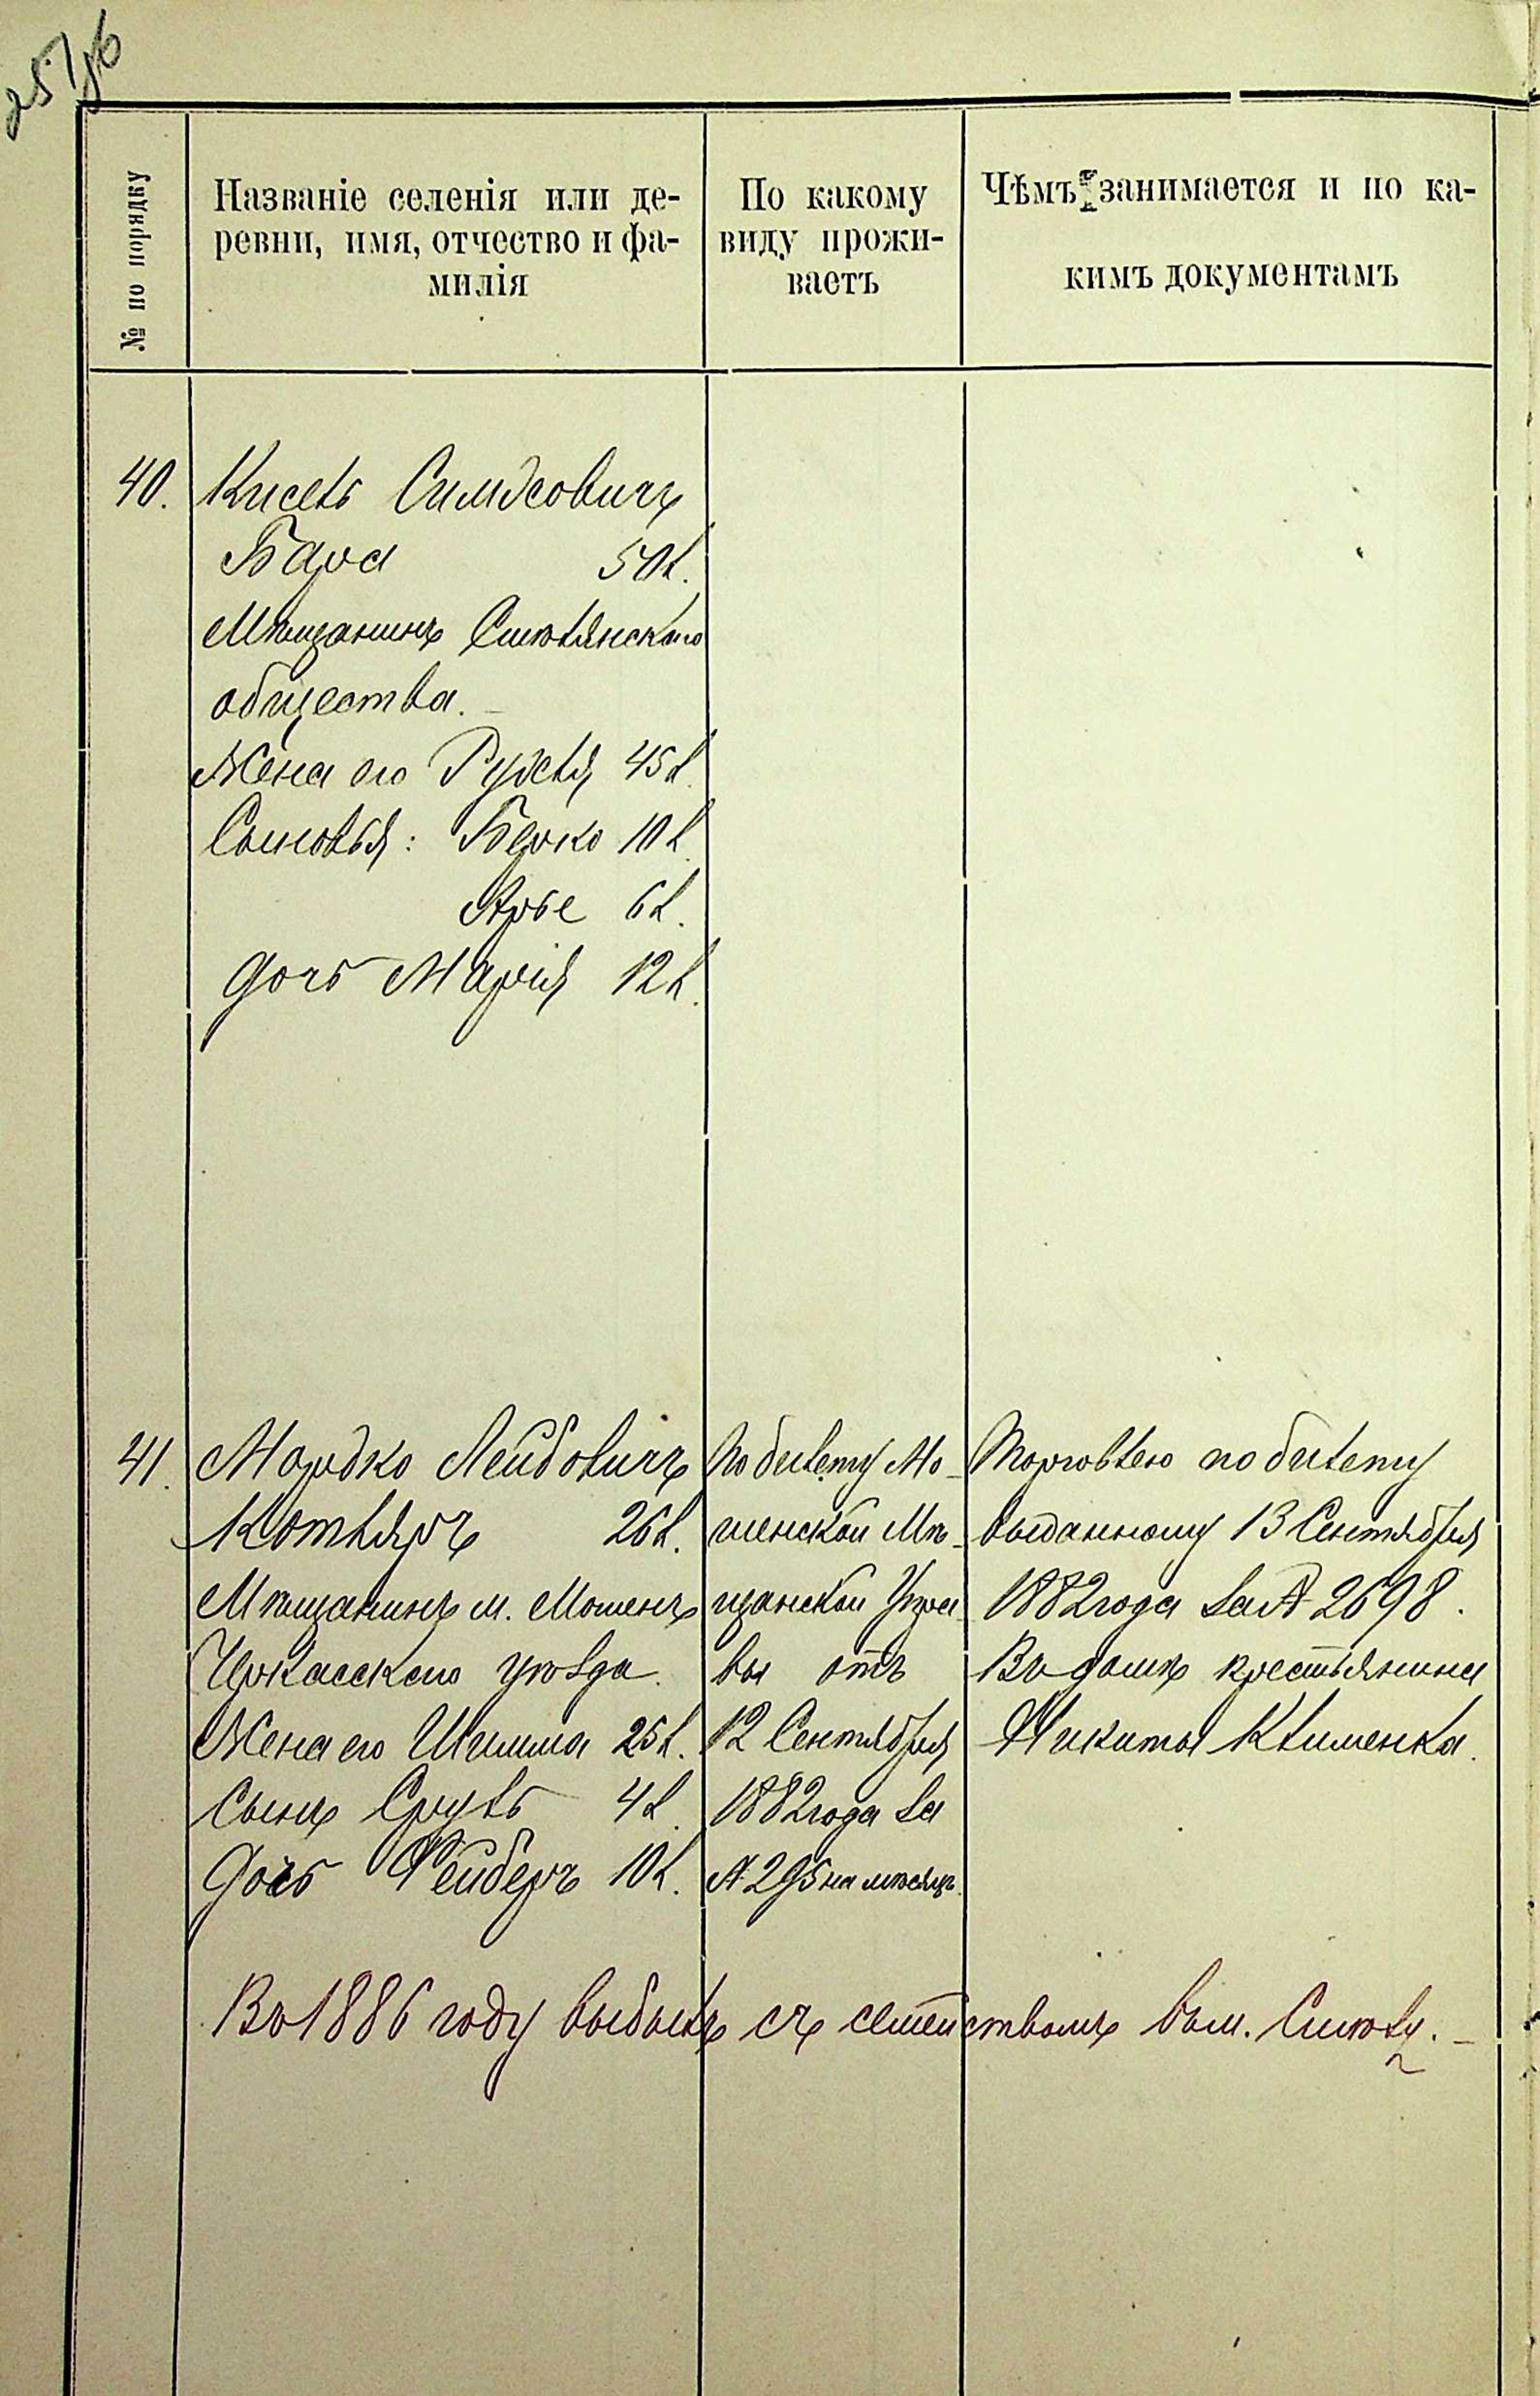 257об
№ по порядку
Названіе селенія или де-
ревни, имя, отчество и фа-
милія
По какому
виду прожи-
ваетъ
Чѣмъ занимается и по ка-
кимъ документамъ
40.
Кисель
50 л.
Мѣщанинъ Смѣлянскаго
общества.
Жена его Рухля 45 л.
Сыновья: Берко 10 л.
Арье 6 л.
Дочь Марія 12 л.
41.
Мордко Лейбовичъ
Котляръ 26 л.
Мѣщанинъ м. Мошенъ
Черкасскаго уѣзда.
Жена его 25 л.
Сынъ Сруль 4 л.
Дочь 10 л.
По билету Мо-
шенской Мѣ-
щанской Упра
вы отъ
12 Сентября
1882 года за
№ 295 на мѣсяцъ.
Торговлею по билету
выданному 13 Сентября
1882 года за № 2698.
Въ домѣ крестьянина
Никиты Клименка.
Въ 1886 году выбылъ съ семействомъ въ м. Смѣлу.